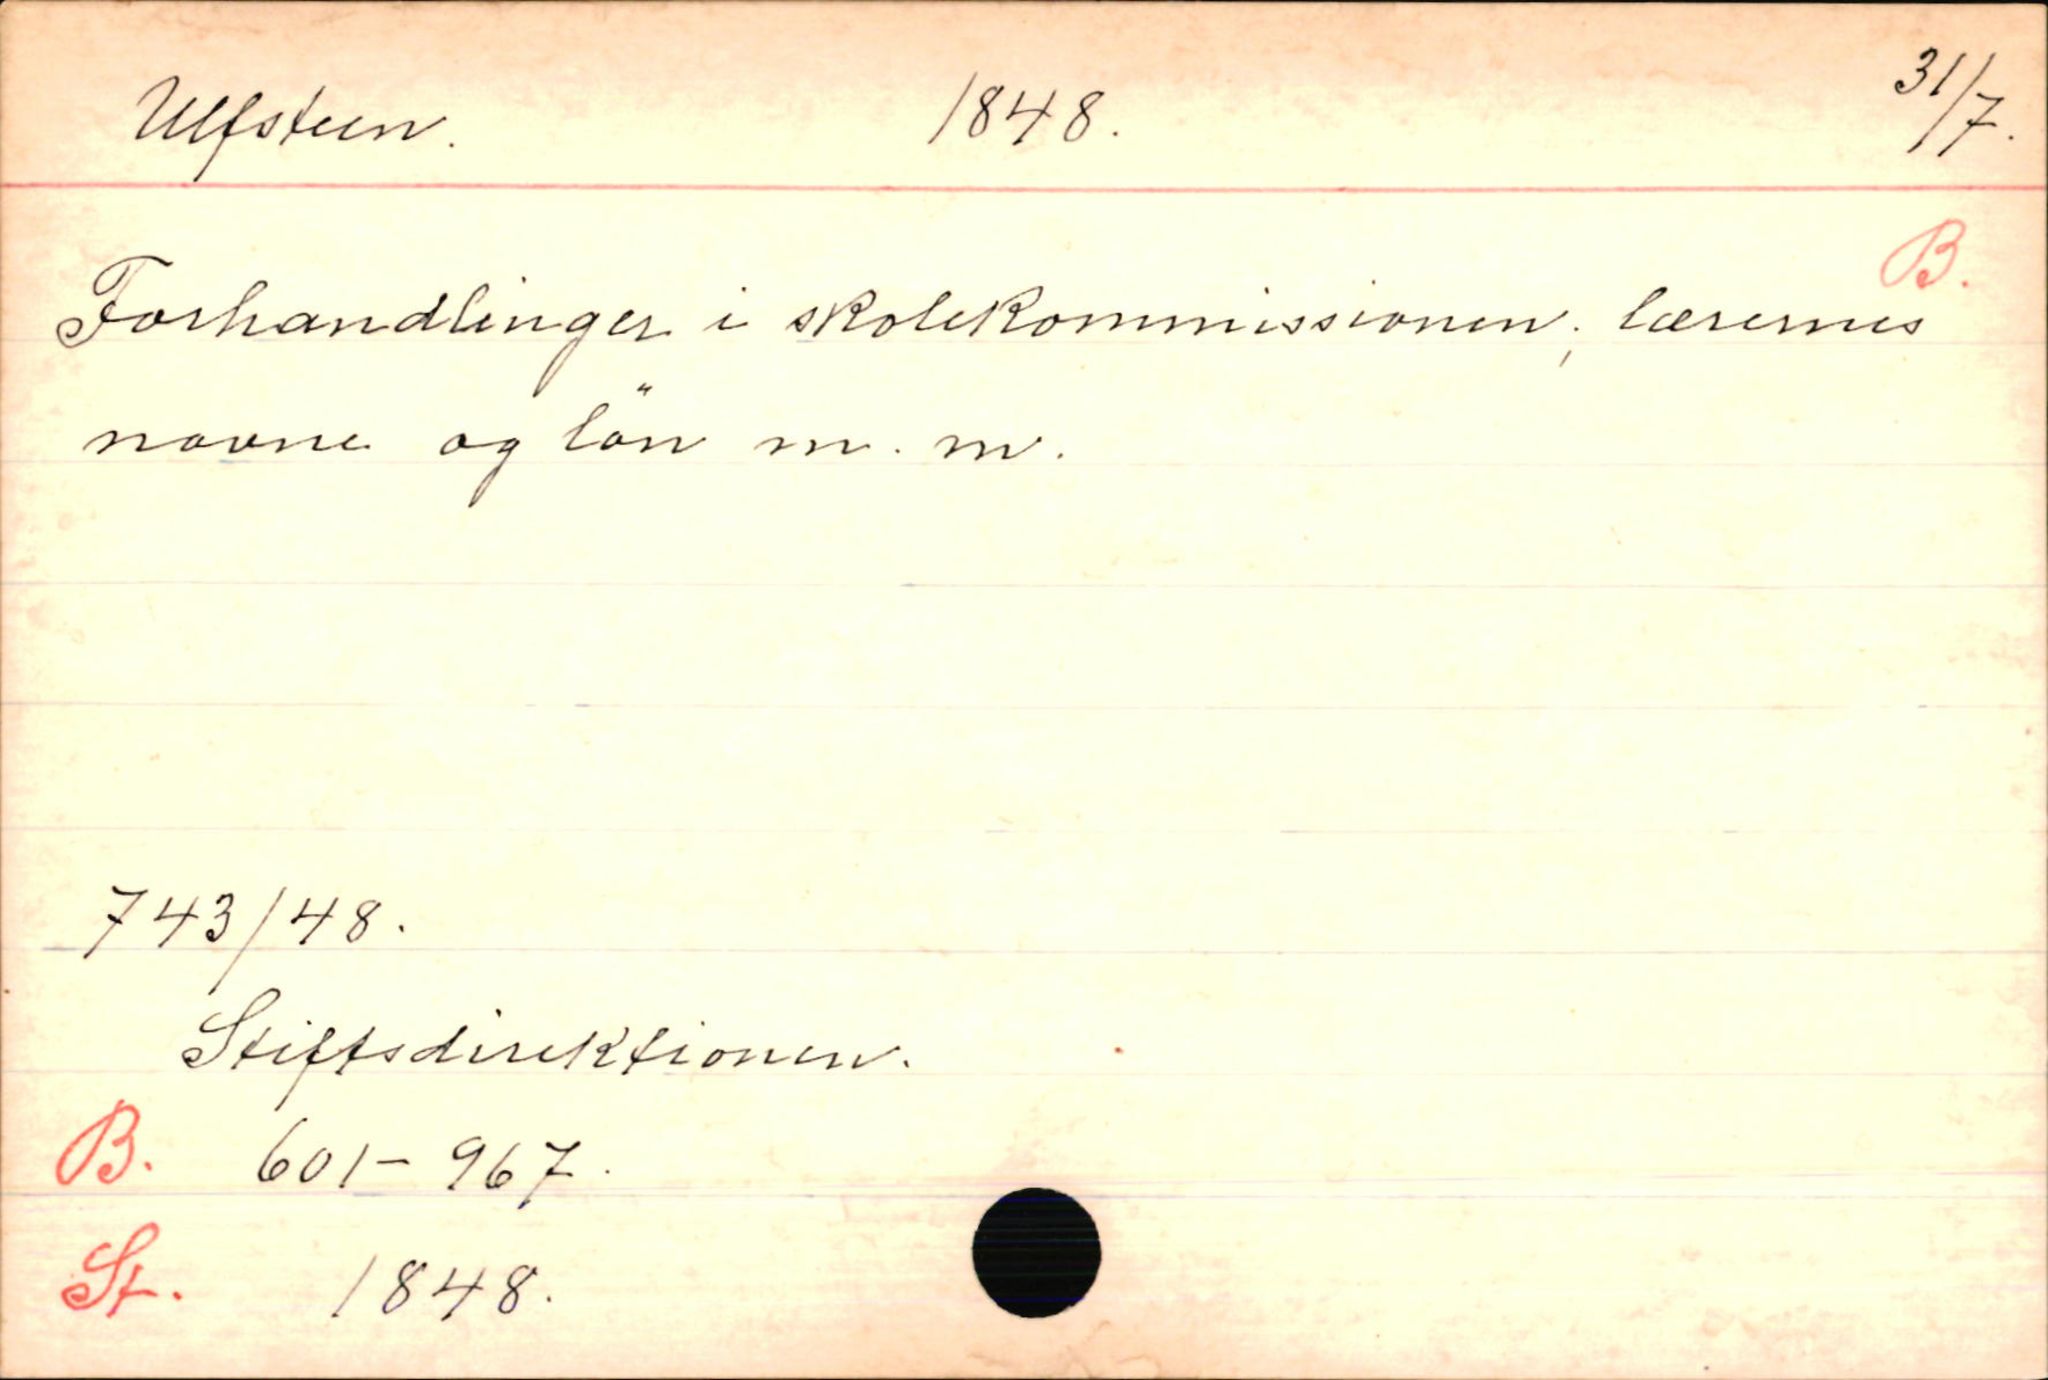 Ulfsteen. 1848. 31/7.
B.
Forhandlinger i skolekommissionen; lærernes
navne og lön m. m.
743/48.
Stiftsdirektionen.
B. 601-967.
St. 1848.